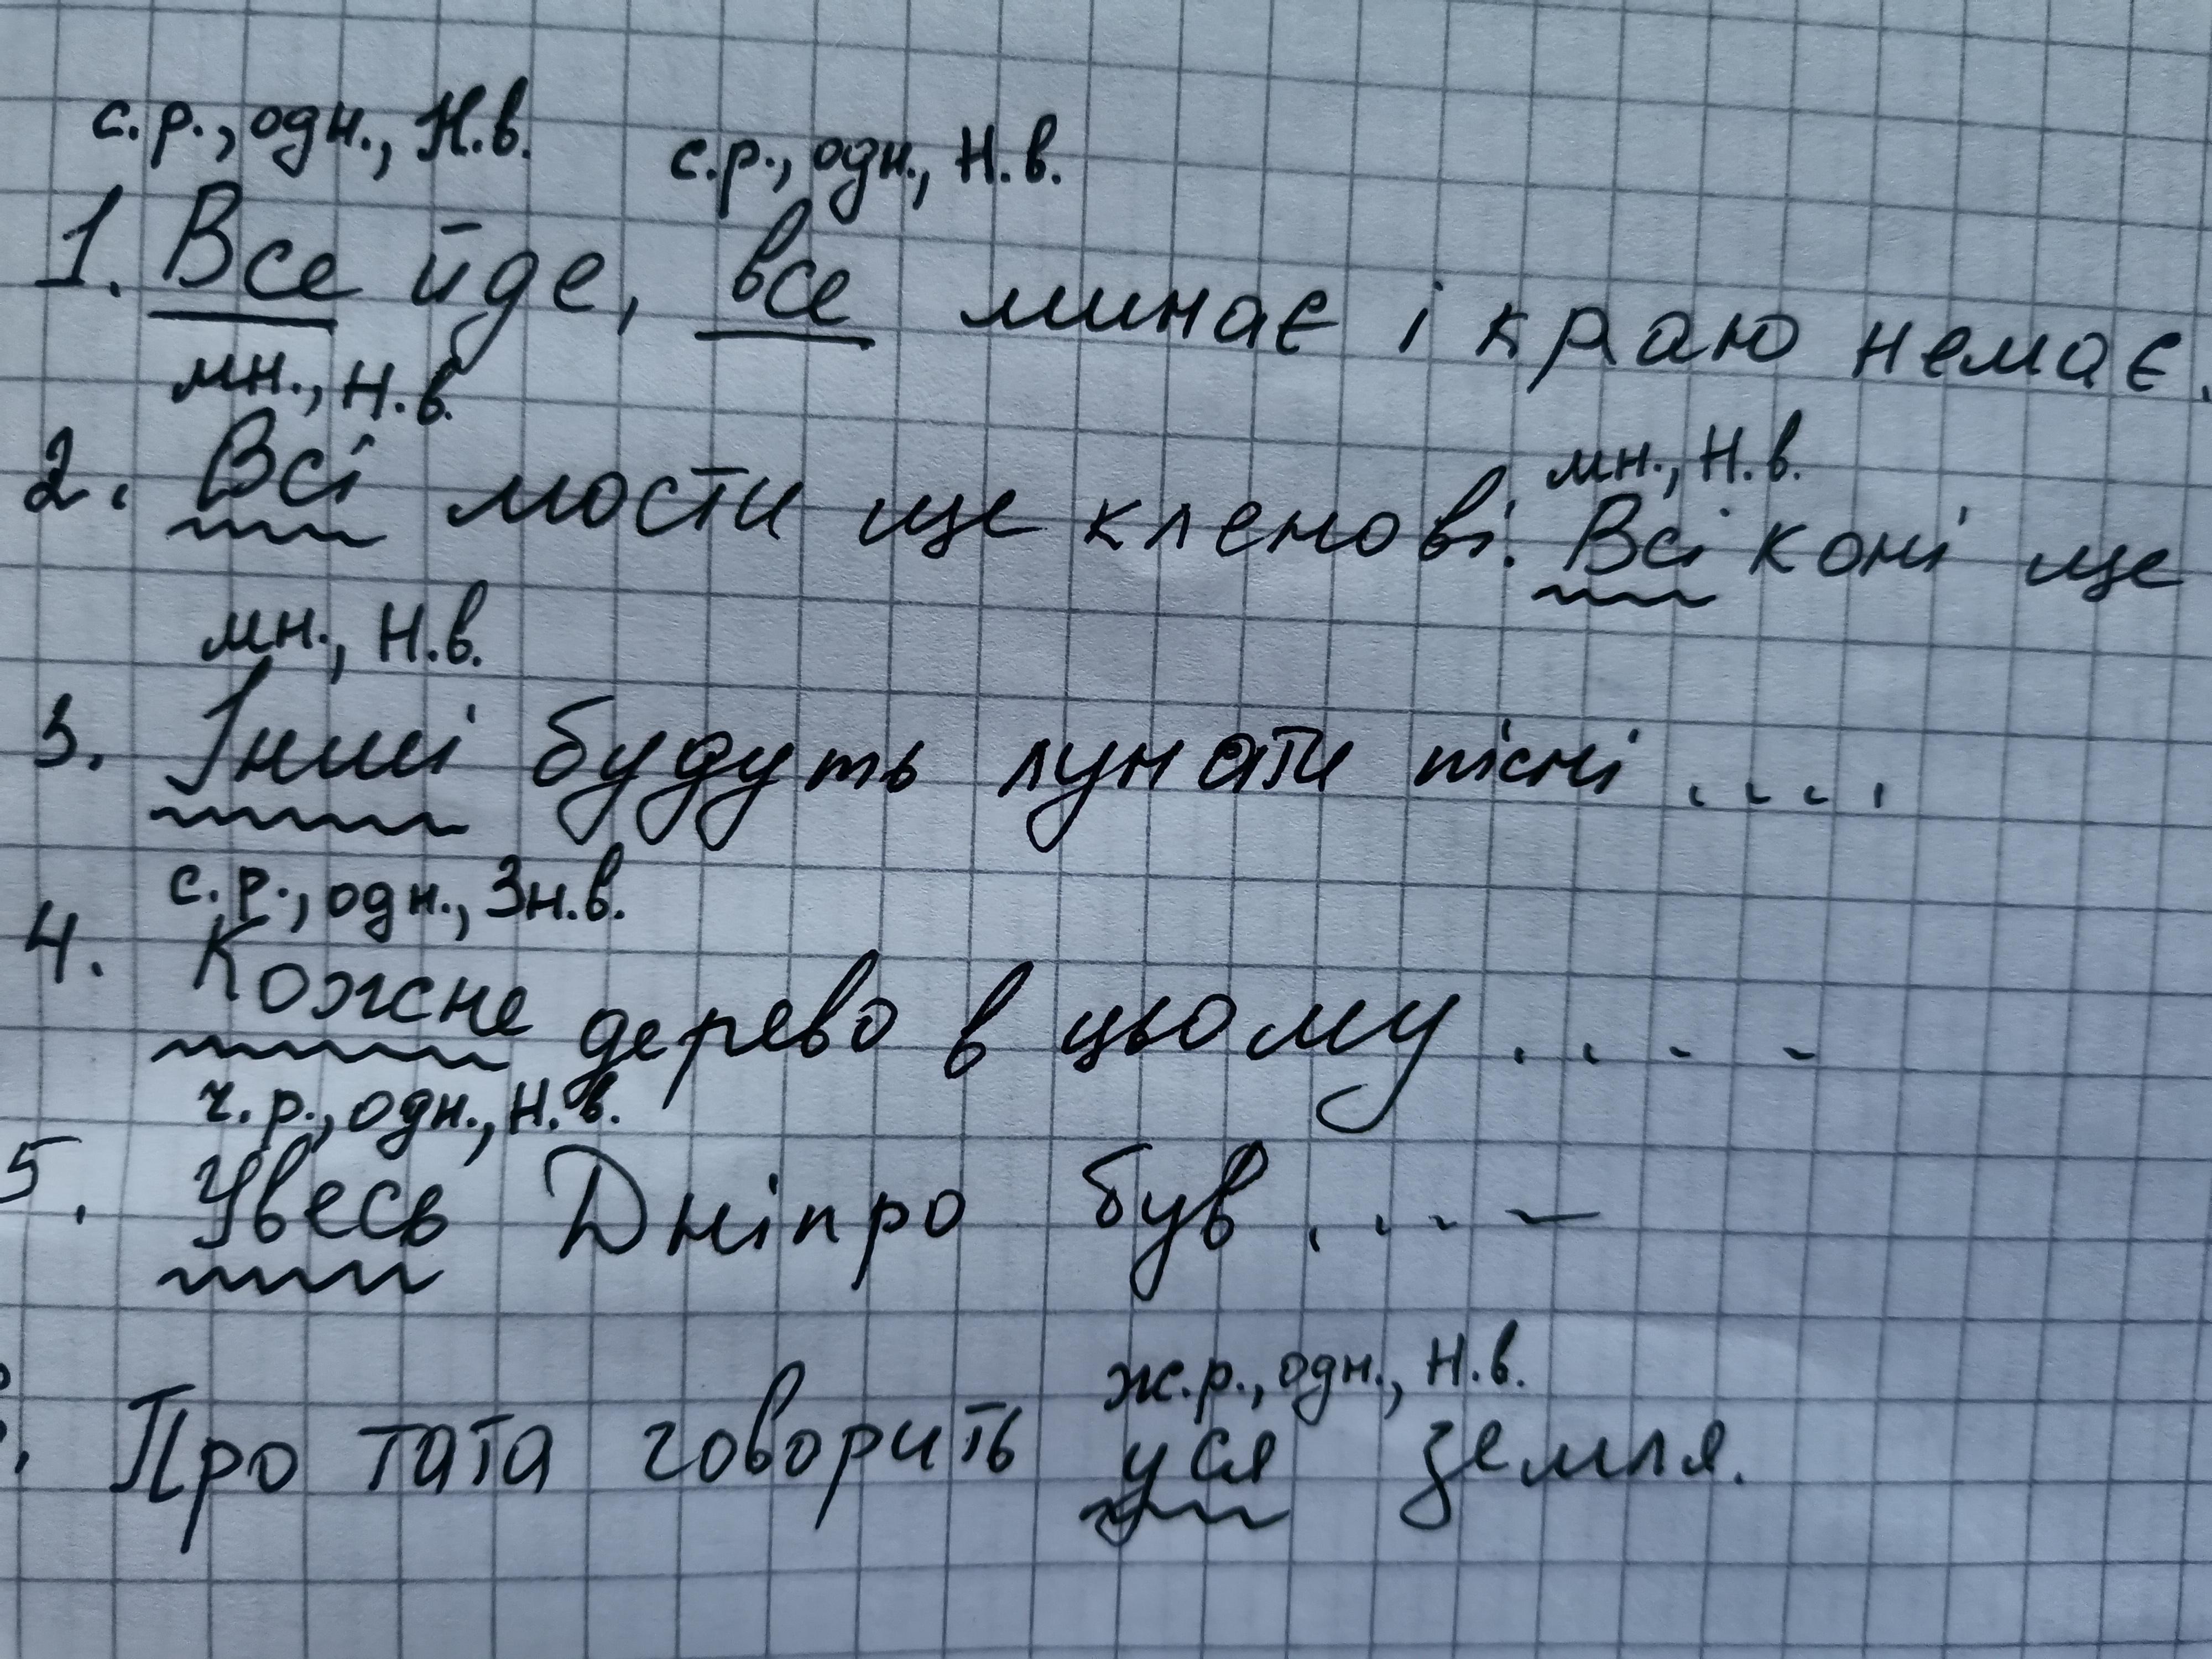 с.р., одн., Н.в. с.р., одн., Н.в.
1. Все йде, все минає і краю немає.
мн., Н.в. мн., Н.в.
2. Всі мости ще кленові. Всі коні ще
мн., Н.в.
3. Інші будуть лунати пісні ....
с.р., одн., Зн.в.
4. Кожне дерево в цьому ....
ч.р., одн., Н.в.
5. Увесь Дніпро був ....
ж.р., одн., Н.в.
Про тата говорить уся земля.